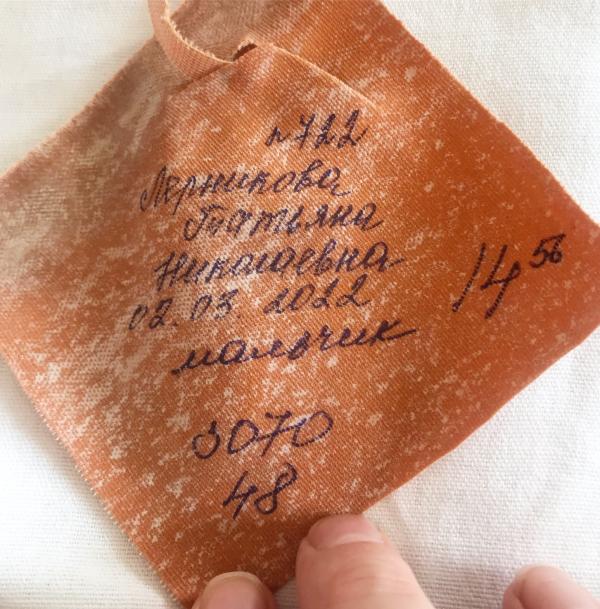 п 722
Лярникова
Татьяна
Николаевна
02.03.2022
14 56
мальчик
3070
48